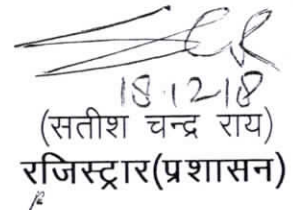 18.12.18
(सतीश चन्द्र राय)
रजिस्ट्रार(प्रशासन)